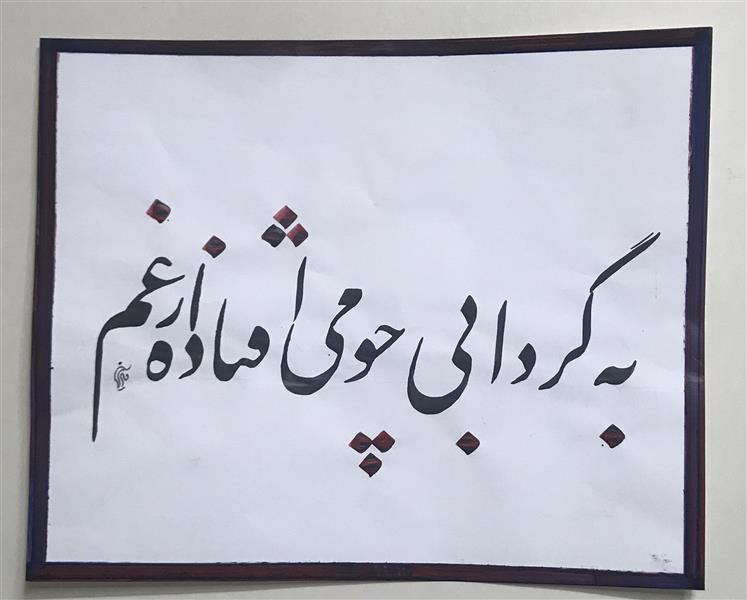 به گردابی چو می افتاده از غم